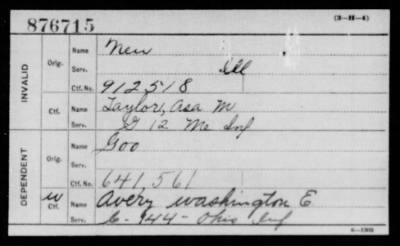 876715 (3-H-4)
INVALID
Orig. Name New
Serv. Ill
Ctf. No. 912518
Ctf. Name Taylor, Asa M
Serv. G 12 Me Inf
DEPENDENT
Orig. Name Goo
Serv.
Ctf. No. 641,561
W Ctf. Name Avery Washington E
Serv. C - 144 - Ohio Inf